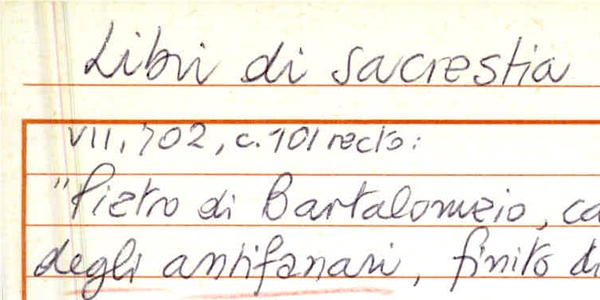 Libri di sacrestia
VII, 702, c. 101 recto:
"Pietro di Bartalomeio, ca
degli antifanari, finito di